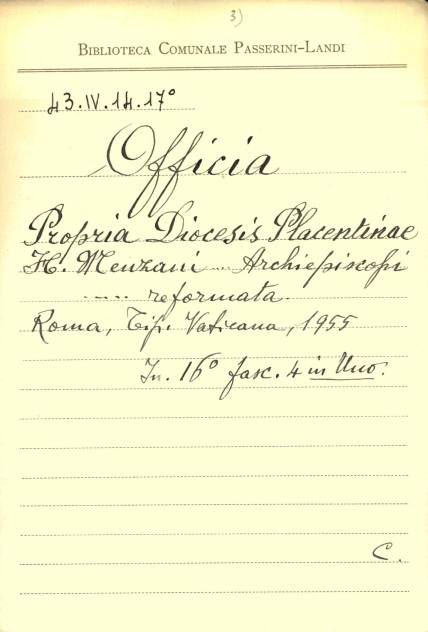 3)
BIBLIOTECA COMUNALE PASSERINI-LANDI
43.IV.14.17°
Officia
Propria Diocesis Placentinae
H. Menzani .... Archiepiscopi
..... reformata.
Roma, Tip. Vaticana, 1955
In. 16° fasc. 4 in Uno.
C.